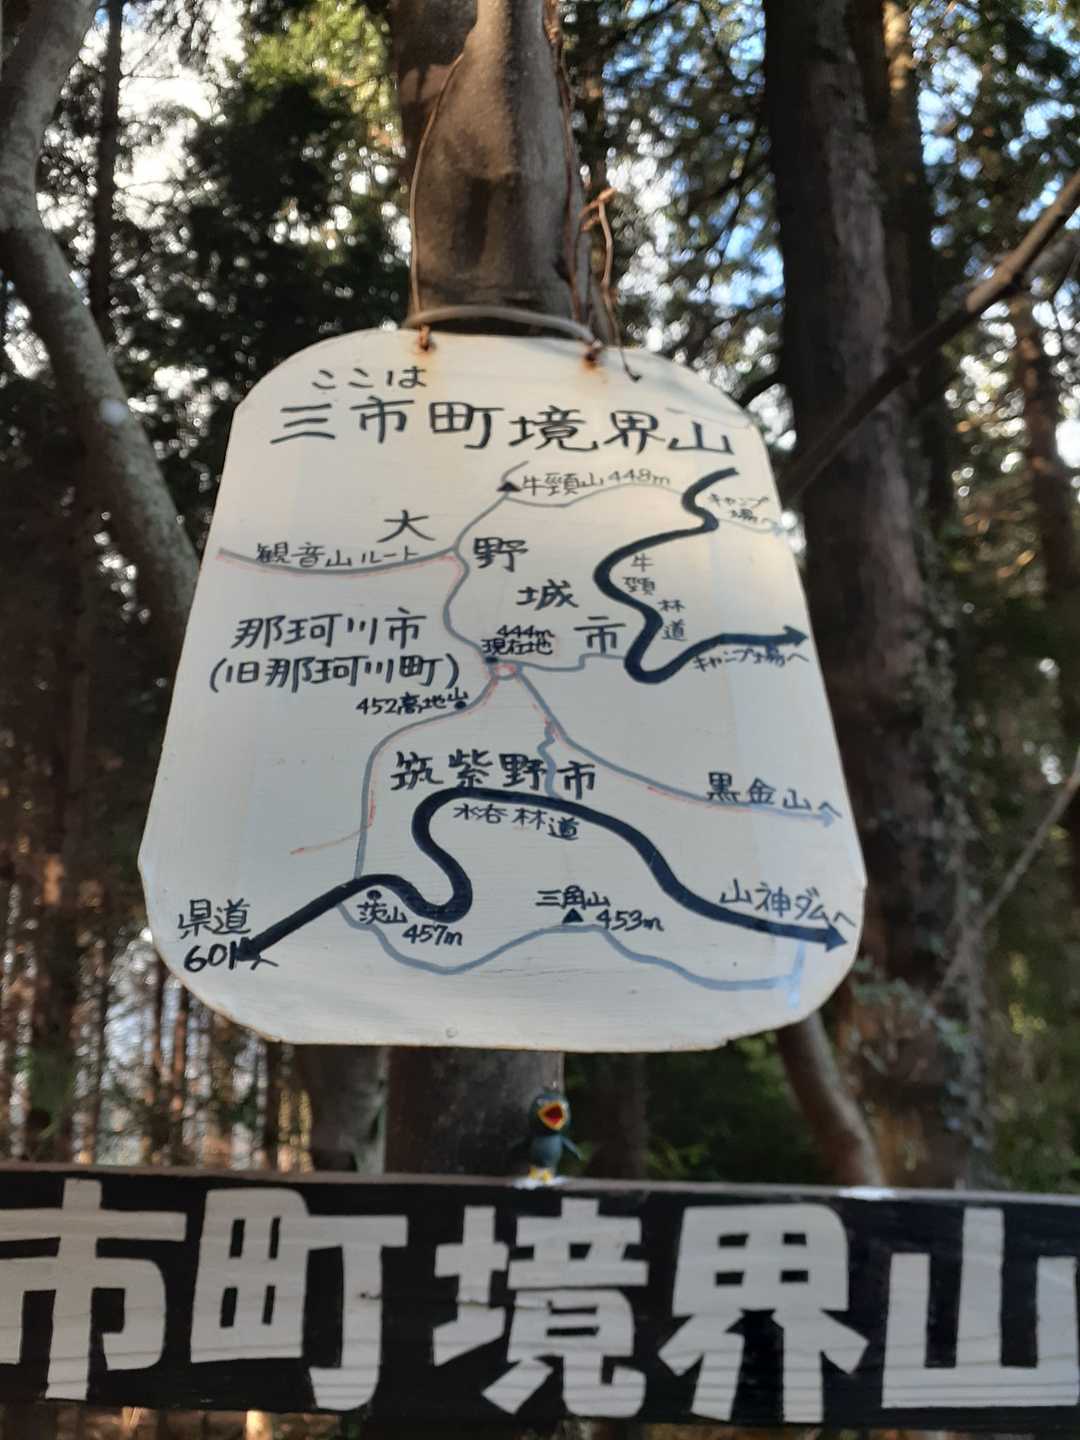 ここは
三市町境界山
牛頸山 448m
キャンプ
場へ
大野城市
観音山ルート
牛頸林道
那珂川市
(旧那珂川町)
444m
現在地
キャンプ場へ
452高地山
筑紫野市
黒金山へ
水谷林道
県道
601へ
茨山
457m
三角山
453m
山神ダムへ
市町境界山